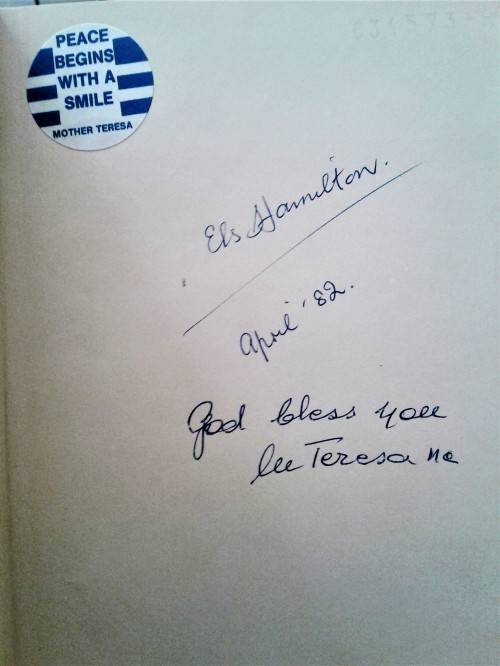 PEACE
BEGINS
WITH A
SMILE
MOTHER TERESA
Els Hamilton.
April '82.
God bless you
M Teresa mc